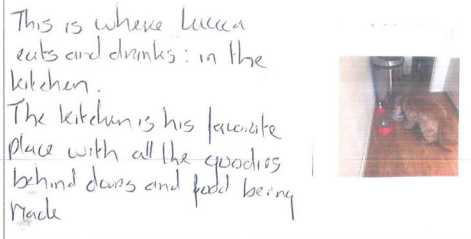 This is where Lucca
eats and drinks: in the
kitchen.
The kitchen is his favorite
place with all the goodies
behind doors and food being
made